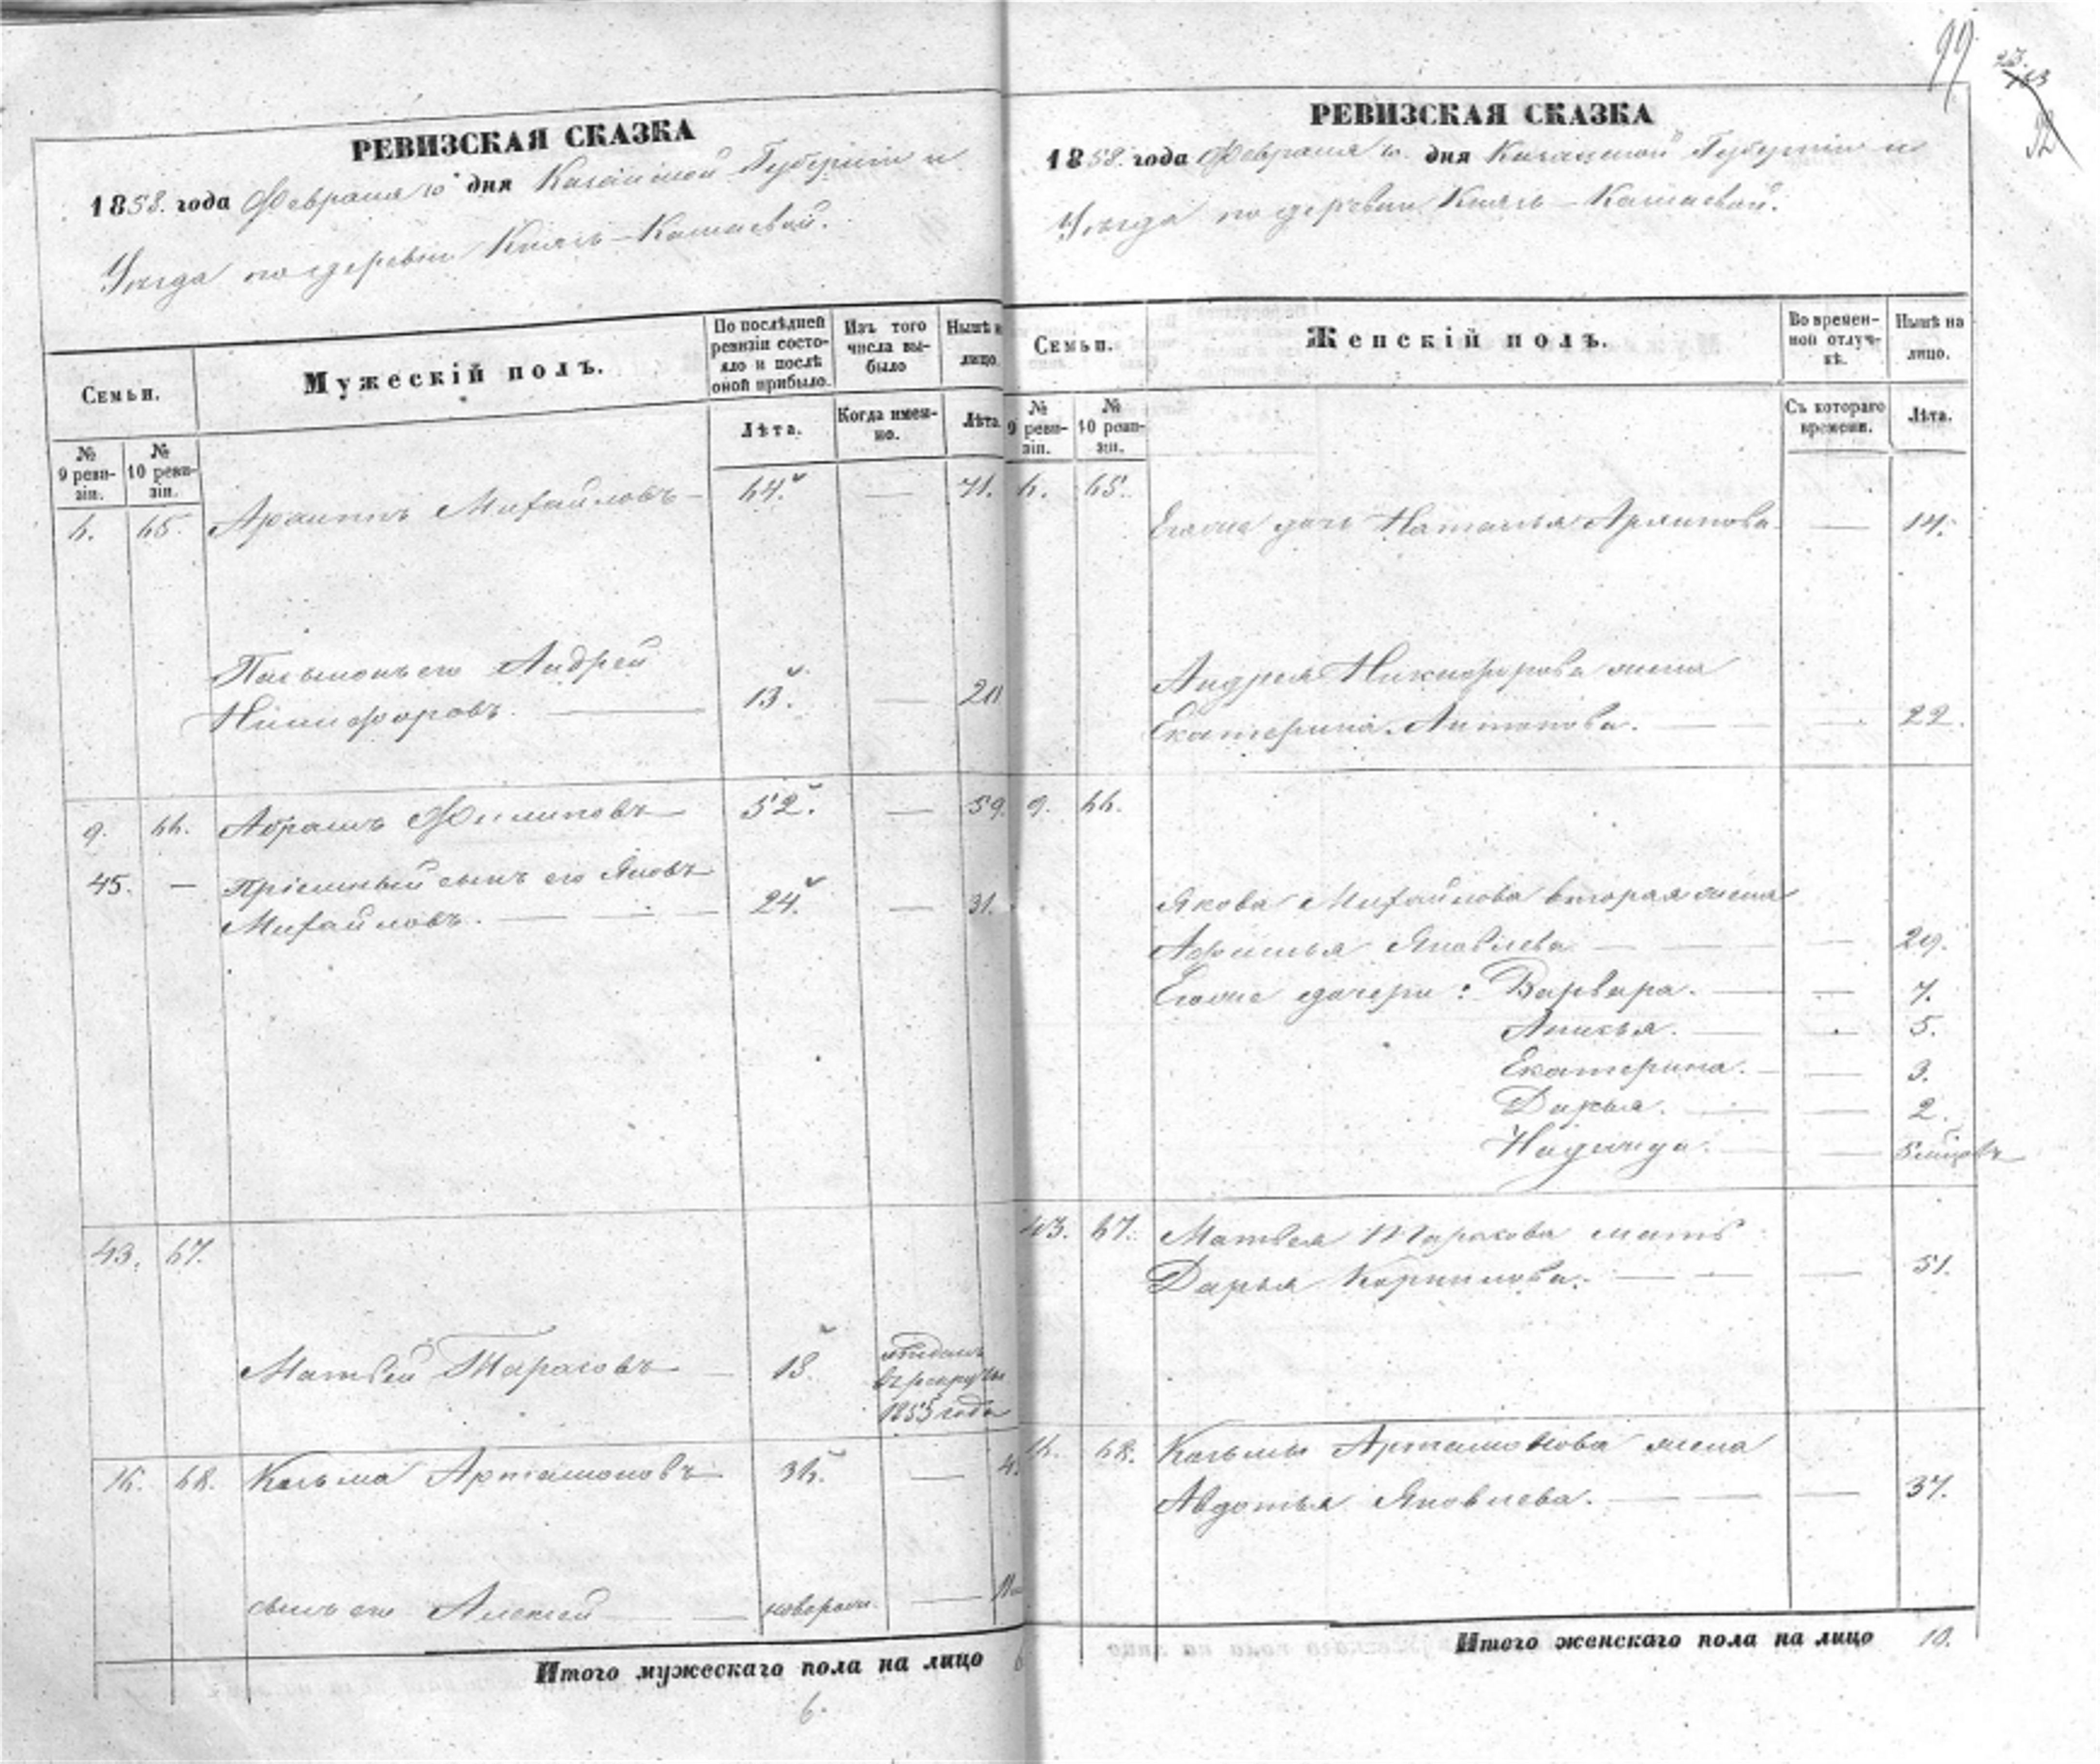 99
23.
32
РЕВИЗСКАЯ СКАЗКА
1858. года Февраля 10 дня Казанской Губерніи и
Уѣзда по деревни Князь-Камаевой.
Семьи.
Мужескій полъ.
По послѣдней ревизіи состояло и послѣ оной прибыло.
Изъ того числа выбыло
Нынѣ на лицо.
№ 9 ревизіи.
№ 10 ревизіи.
Лѣта.
Когда именно.
Лѣта.
6. 65. Архиппъ Михайловъ 64. — 71.
Пасынокъ его Андрей
Никифоровъ. 13. — 20
9. 66. Абрамъ Филиповъ 52. — 59.
45. — Пріемный сынъ его Яковъ
Михайловъ. 24. — 31.
43. 67.
Матвей Тарасовъ 18. отданъ
въ рекруты
1855 года
16. 68. Козьма Артамоновъ 36. — 4
сынъ его Алексей новорож. — 11
Итого мужескаго пола на лицо 6
6.
РЕВИЗСКАЯ СКАЗКА
1858. года Февраля 10. дня Казанской Губерніи и
Уѣзда по деревни Князь-Камаевой.
Семьи.
Женскій полъ.
Во временной отлучкѣ.
Нынѣ на лицо.
№ 9 ревизіи.
№ 10 ревизіи.
Съ котораго времени.
Лѣта.
6. 65.
Егоже дочь Наталья Архипова — 14.
Андрея Никифорова жена
Екатерина Антонова. — 22.
9. 66.
Якова Михайлова вторая жена
Афимья Яковлева — 29.
Егоже дочери: Варвара. — 7.
Анисья. — 5.
Екатерина. — 3.
Дарья. — 2.
Надежда. — 5 мѣсяцовъ
43. 67. Матвея Тарасова мать
Дарья Корнилова. — 51.
16. 68. Козьмы Артамонова жена
Авдотья Яковлева. — 37.
Итого женскаго пола на лицо 10.